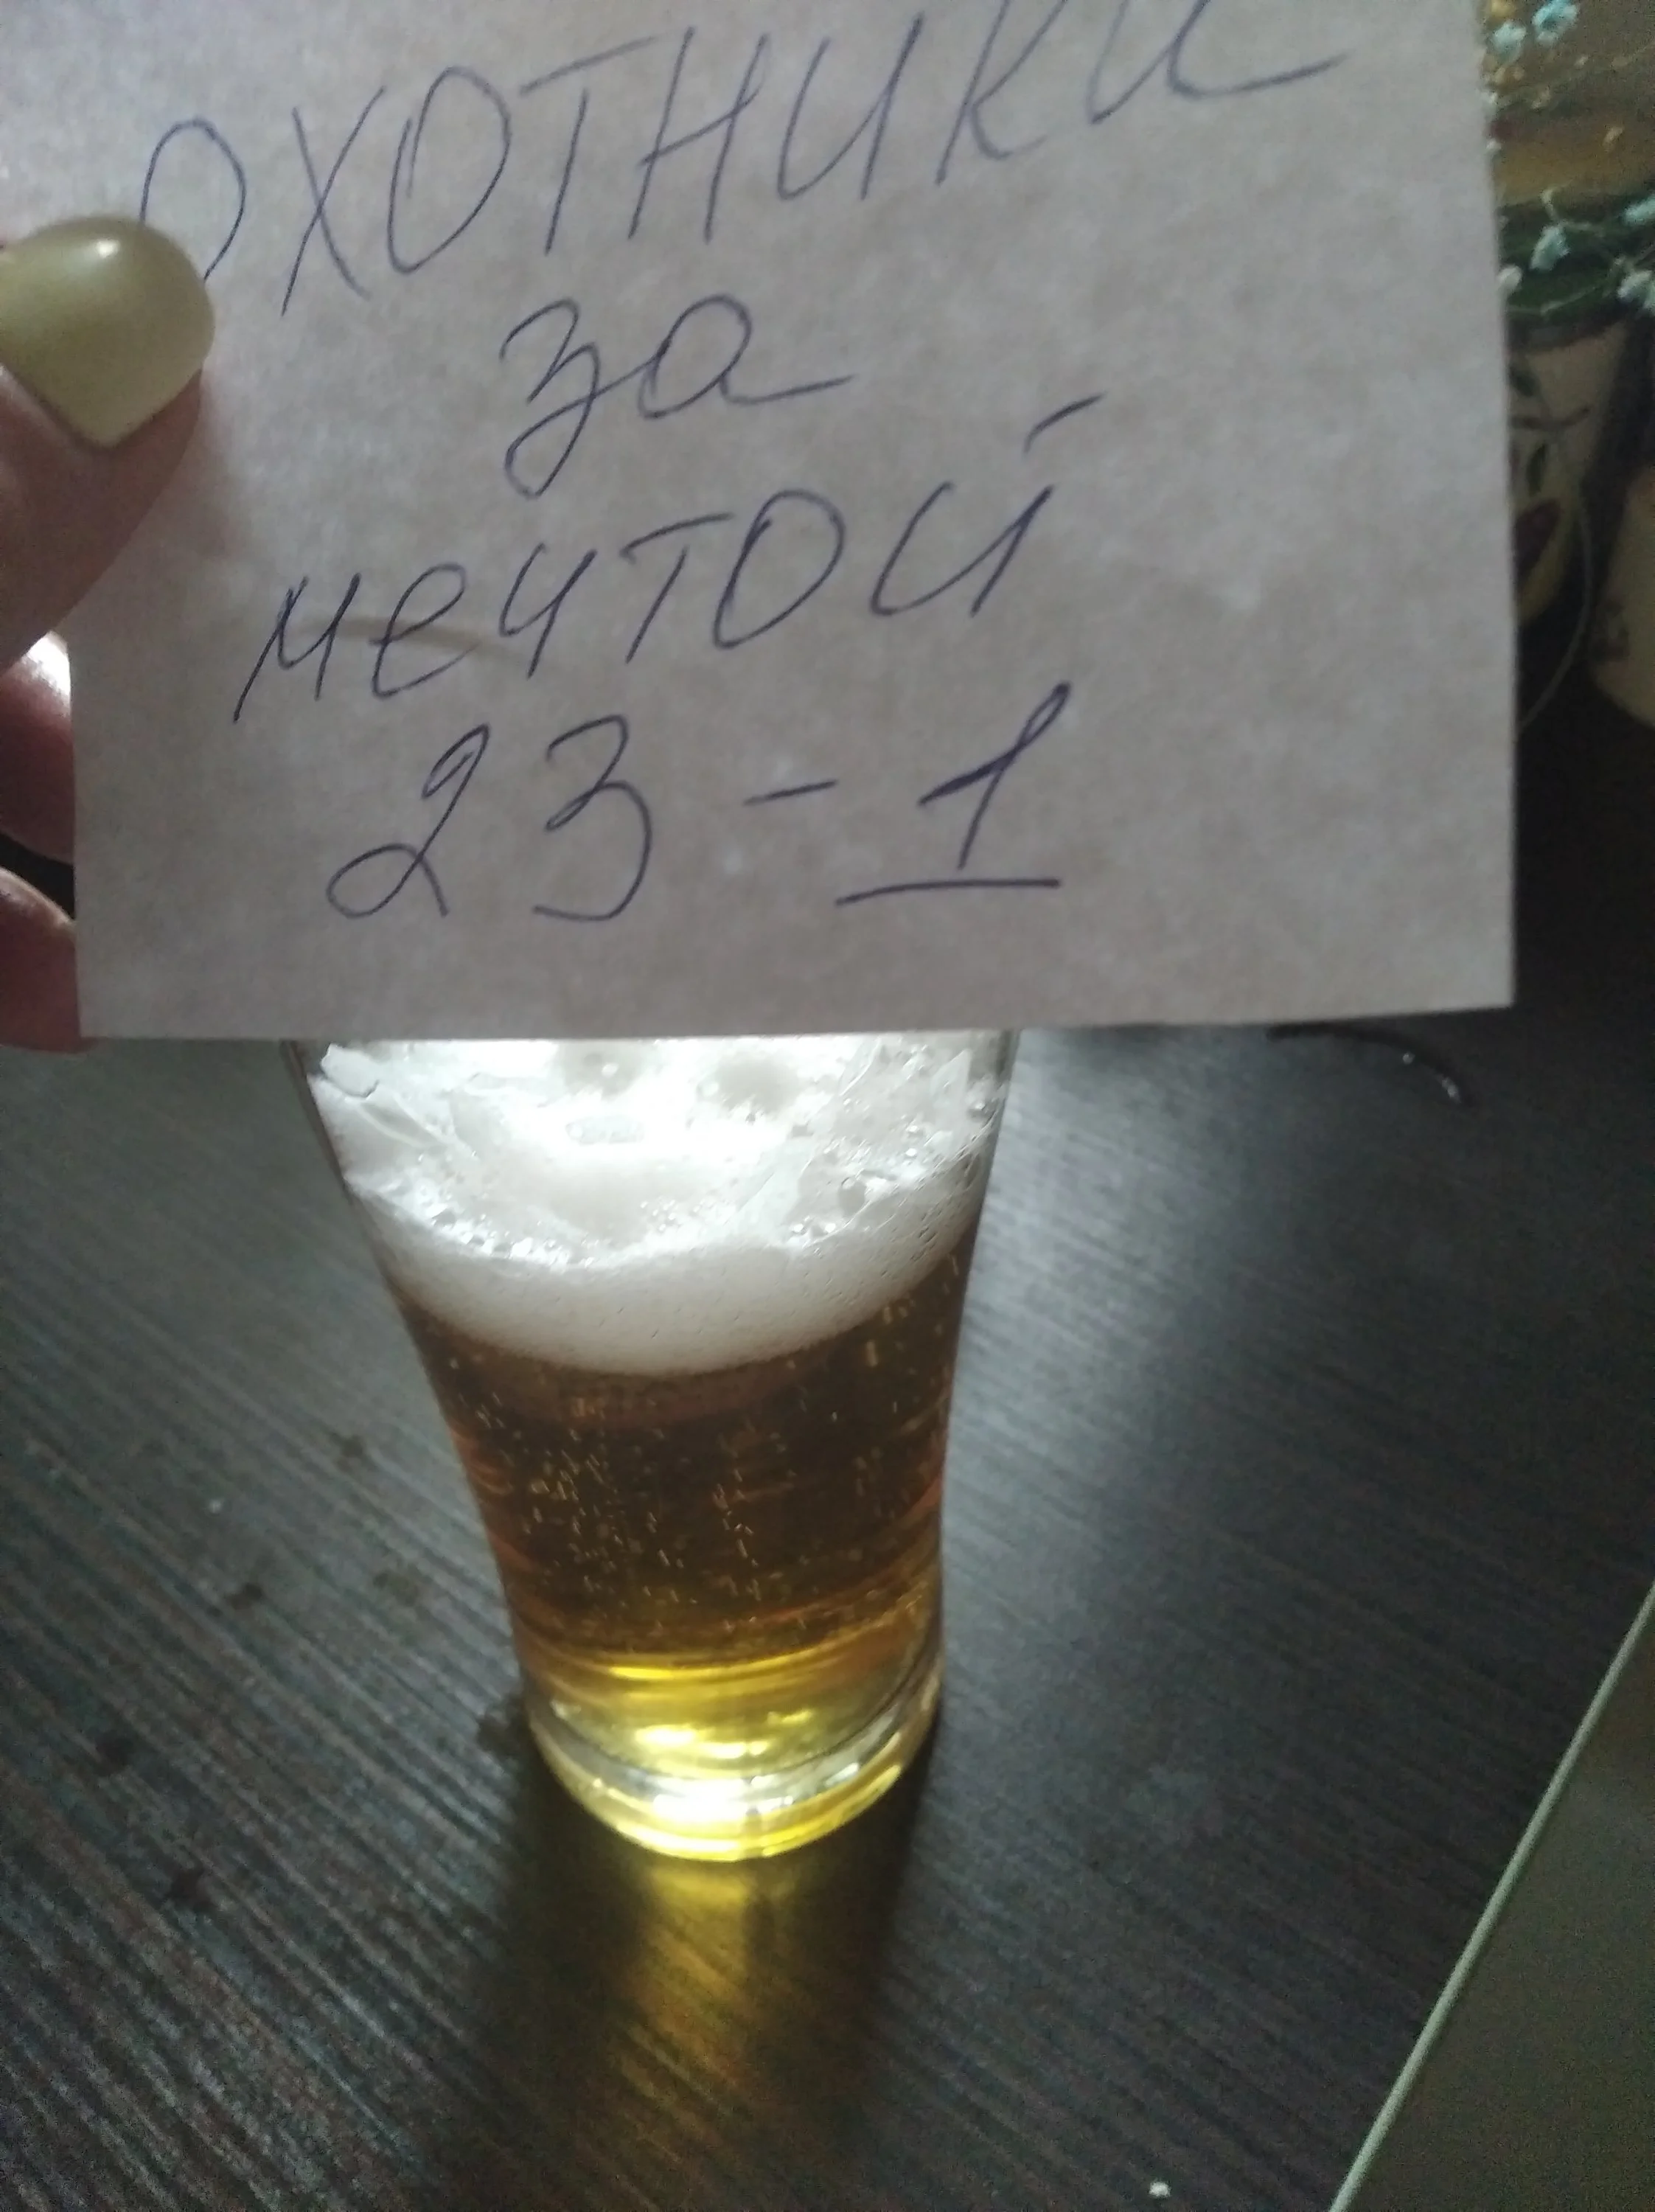 ОХОТНИКИ
за
мечтой
23-1